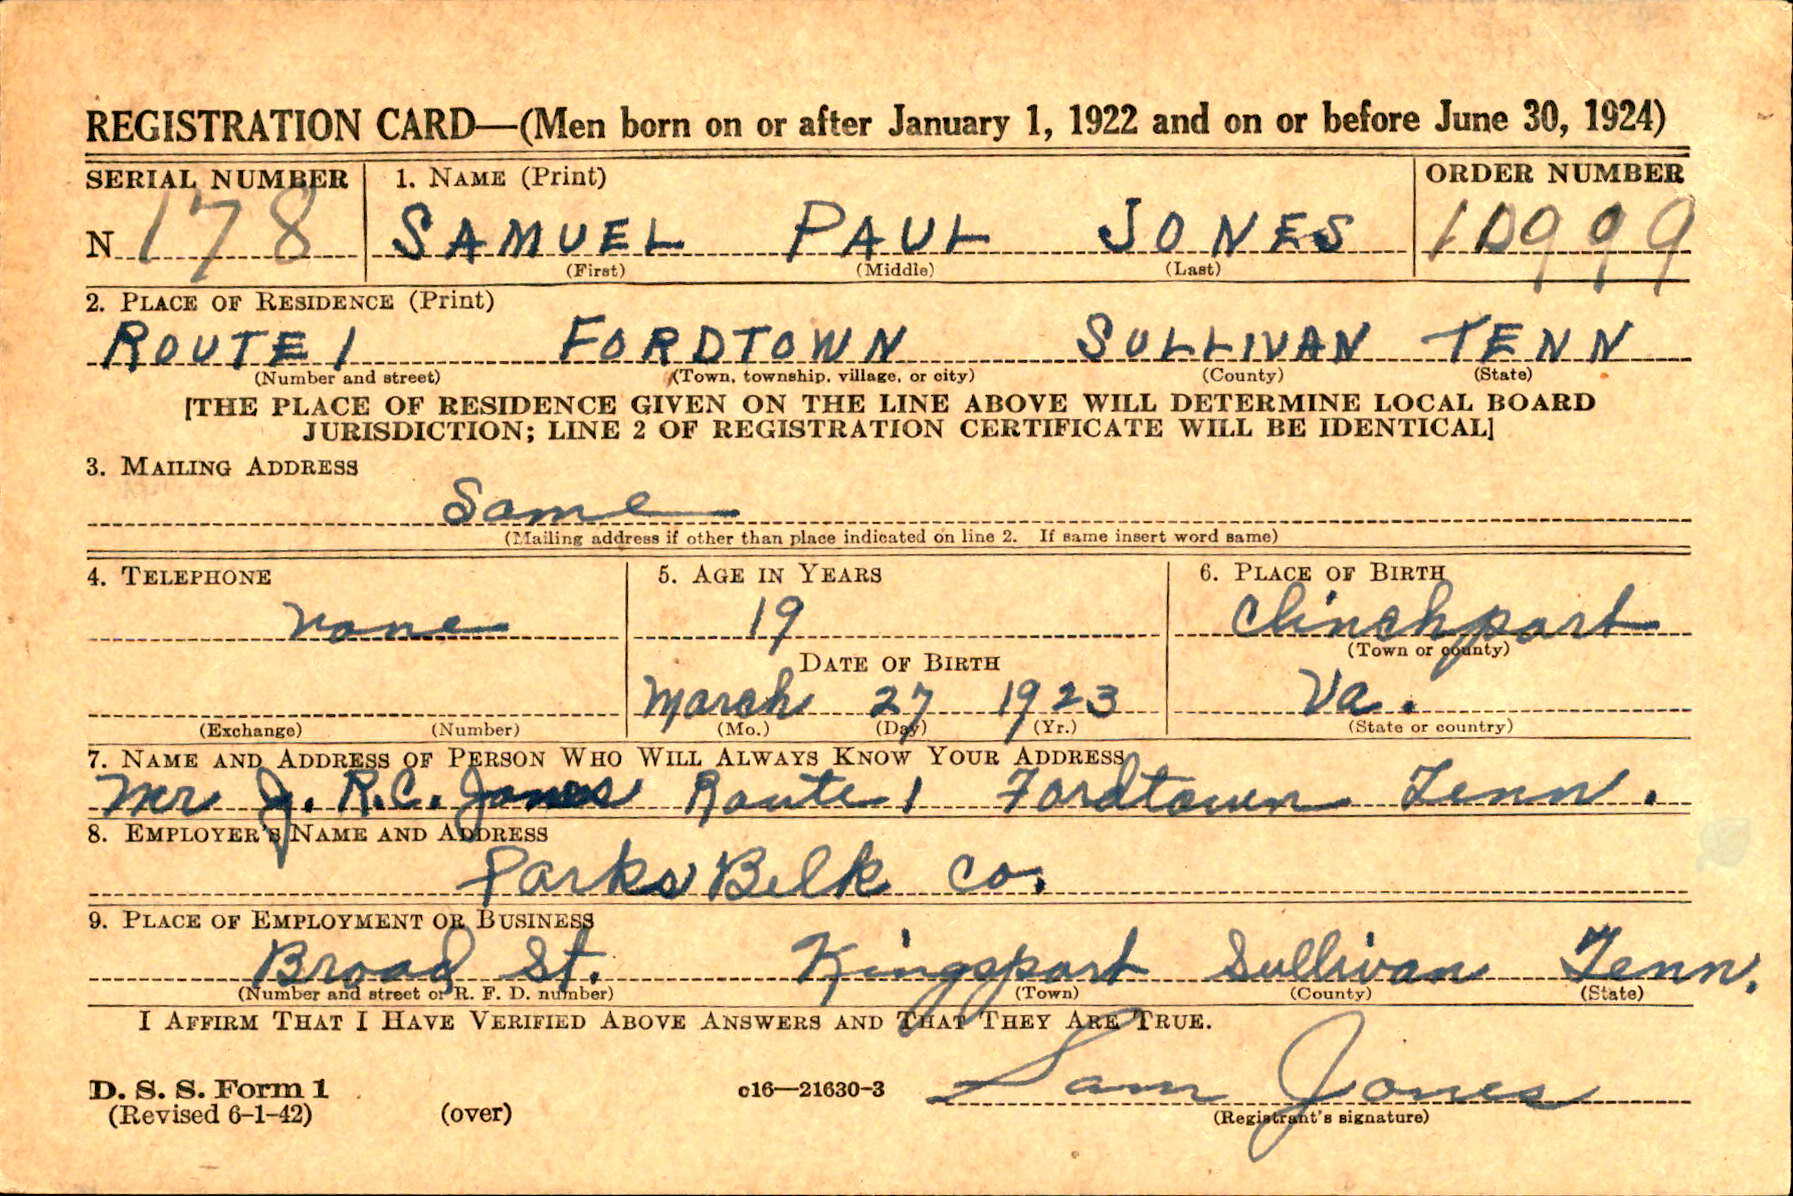 REGISTRATION CARD—(Men born on or after January 1, 1922 and on or before June 30, 1924)
SERIAL NUMBER 1. NAME (Print) ORDER NUMBER
N 178 SAMUEL PAUL JONES 10999
(First) (Middle) (Last)
2. PLACE OF RESIDENCE (Print)
ROUTE 1 FORDTOWN SULLIVAN TENN
(Number and street) (Town, township, village, or city) (County) (State)
[THE PLACE OF RESIDENCE GIVEN ON THE LINE ABOVE WILL DETERMINE LOCAL BOARD
JURISDICTION; LINE 2 OF REGISTRATION CERTIFICATE WILL BE IDENTICAL]
3. MAILING ADDRESS
Same
(Mailing address if other than place indicated on line 2. If same insert word same)
4. TELEPHONE 5. AGE IN YEARS 6. PLACE OF BIRTH
none 19 Clinchport
(Town or county)
DATE OF BIRTH
March 27 1923 Va.
(Exchange) (Number) (Mo.) (Day) (Yr.) (State or country)
7. NAME AND ADDRESS OF PERSON WHO WILL ALWAYS KNOW YOUR ADDRESS
Mr J. R.C. Jones Route 1 Fordtown Tenn.
8. EMPLOYER'S NAME AND ADDRESS
Parks Belk Co.
9. PLACE OF EMPLOYMENT OR BUSINESS
Broad St. Kingsport Sullivan Tenn.
(Number and street or R. F. D. number) (Town) (County) (State)
I AFFIRM THAT I HAVE VERIFIED ABOVE ANSWERS AND THAT THEY ARE TRUE.
D. S. S. Form 1 c16—21630-3 Sam Jones
(Revised 6-1-42) (over) (Registrant's signature)